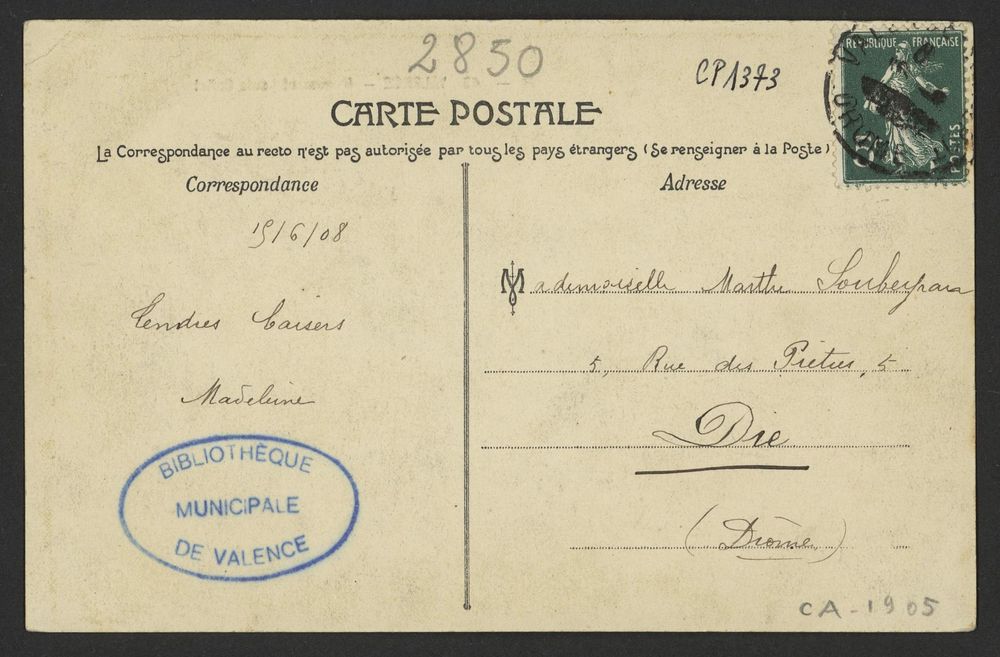 2850
CP1373
CARTE POSTALE
La Correspondance au recto n'est pas autorisée par tous les pays étrangers (Se renseigner à la Poste)
Correspondance
15/6/08
Tendres baisers
Madeleine
BIBLIOTHÈQUE
MUNICIPALE
DE VALENCE
Adresse
Mademoiselle Marthe Soubeyran
5, Rue des Prêtres, 5
Die
(Drôme)
CA-1905
REPUBLIQUE FRANÇAISE
POSTES
DROME